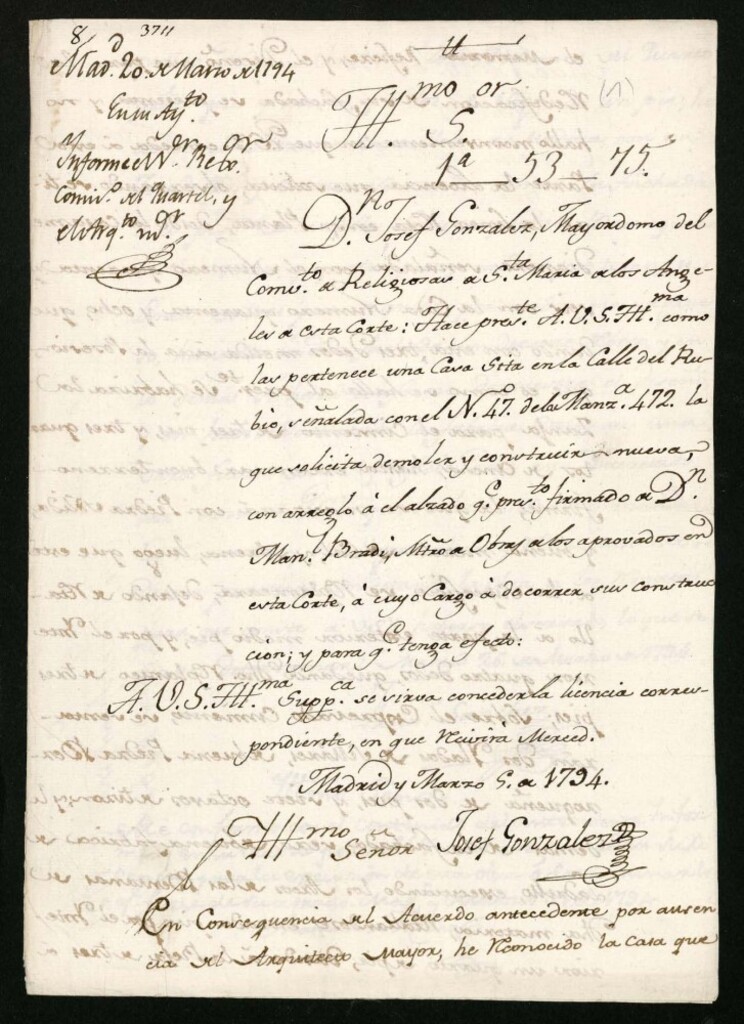 8 3711
Mad.d 20. de Marzo de 1794
En su Ay.to
Informe el S.r Reg.or
Comis.o del Quartel, y
el Arq.to m.or
(1)
Ill.mo S.or
1a 53 75.
D.n Josef Gonzalez, Mayordomo del
Comv.to de Religiosas de S.ta Maria de los Ange-
les de esta Corte: Hace pres.te A. V. S. Ill.ma como
las pertenece una Casa Sita en la Calle del Ru-
bio, señalada con el N.o 47. de la Manz.a 472. la
que solicita demoler y construir de nueva,
con arreglo á el alzado q.e pres.to firmado de D.n
Man.l Bradi, Mtro de Obras de los aprovados en
esta Corte, á cuyo Cargo á de correr sus construc
cion; y para q.e tenga efecto:
A. V. S. Ill.ma Supp.ca se sirva concederla licencia corres-
pondiente, en que Recivira Merced.
Madrid y Marzo 5. de 1794.
Ill.mo Señor
Josef Gonzalez
En Consequencia del Acuerdo antecedente por ausen
cia del Arquitecto Mayor, he Reconocido la Casa que